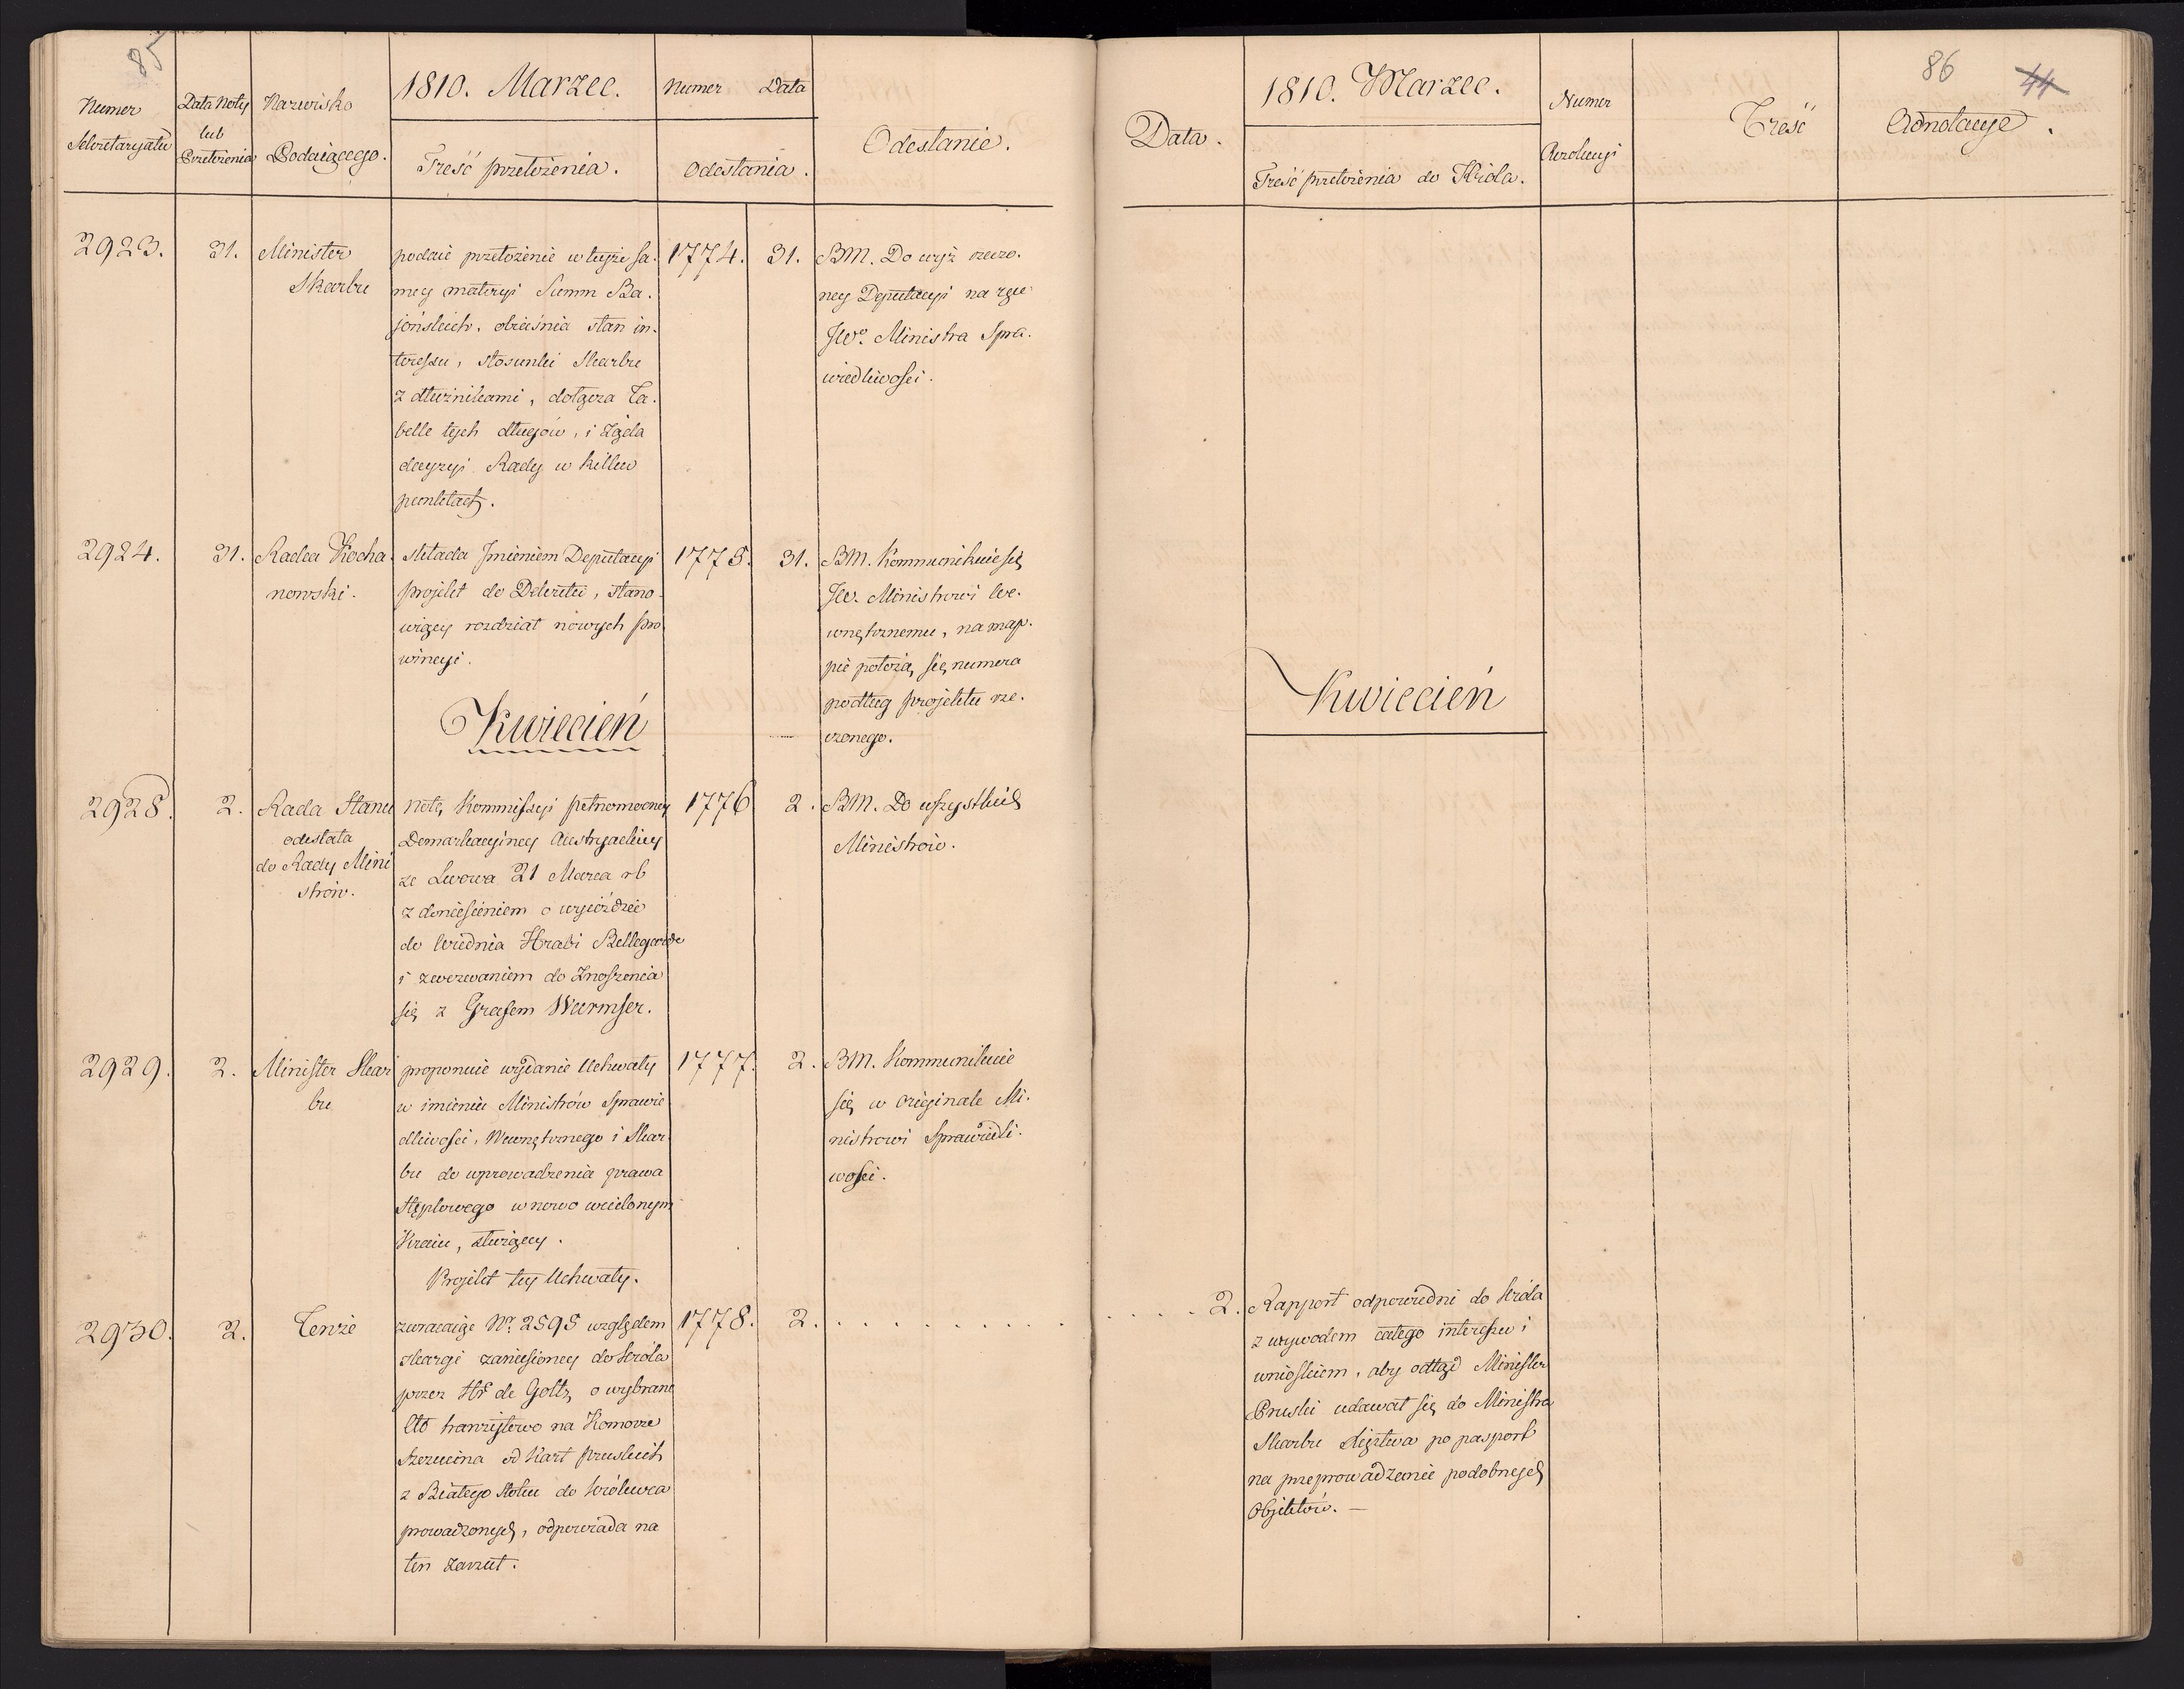 85
Numer
Sekretaryatu
Data Noty
lub
Przełożenia
Nazwisko
Podaiącego.
1810. Marzec.
Treść przełożenia.
Numer Data
Odesłania.
Odesłanie.
2923.
31.
Minister
Skarbu
podaie przełożenie w teyże sa-
mey materyi Summ Ba-
jońskich. obiaśnia stan in-
teressu, stosunki Skarbu
z dłużnikami, dołącza Ta-
belle tych długów, i żąda
decyzyi Rady w kilku
punktach.
1774.
31.
BM. Do wyż rzeczo-
ney Deputacyi na ręce
JWo Ministra Spra-
wiedliwości.
2924.
31.
Radca Kocha-
nowski.
składa Jmieniem Deputacyi
projekt do Dekretu, stano-
wiący rozdział nowych pro
wincyi.
1775.
31.
BM. Kommunikuie się
JW. Ministrowi We-
wnętrznemu, na map-
pie położą się numera
podług projektu rze-
czonego.
Kwiecień
2928.
2.
Rada Stanu
odesłała
do Rady Mini
strów.
notę Kommissyi pełnomocney
Demarkacyiney Austryackiey
ze Lwowa 21 Marca rb
z doniesieniem o wyieździe
do Wiednia Hrabi Bellegarde
i zwezwaniem do Znoszenia
się z Grafem Wurmser.
1776
2.
BM. Do wszystkich
Ministrów.
2929.
2.
Minister Skar
bu
proponuie wydanie Uchwały
w imieniu Ministrów Sprawie
dliwości, Wewnętrznego i Skar
bu do wprowadzenia prawa
Stęplowego w nowo wcielonym
Kraiu, służący.
Projekt tey Uchwały.
1777.
2.
BM. Kommunikuie
się w originale Mi-
nistrowi Sprawiedli-
wości.
2930.
2.
Tenże
zwracaiąc Nr. 2595 względem
skargi zaniesioney do Króla
przez Hr de Goltz, o wybrane
Cło tranzytowo na Komorze
Szczucina od Kart pruskich
z Białego Stoku do Królewca
prowadzonych, odpowiada na
ten zarzut.
1778.
2.
86
44
Data.
1810. Marzec.
Treść przełożenia do Króla.
Numer
Rezolucyi
Treść
Adnotacye.
Kwiecień
2.
Rapport odpowiedni do Króla
z wywodem całego interessu i
wnioskiem, aby odtąd Minister
Pruski udawał się do Ministra
Skarbu Xięztwa po pasport
na przeprowadzenie podobnych
Objektów. —